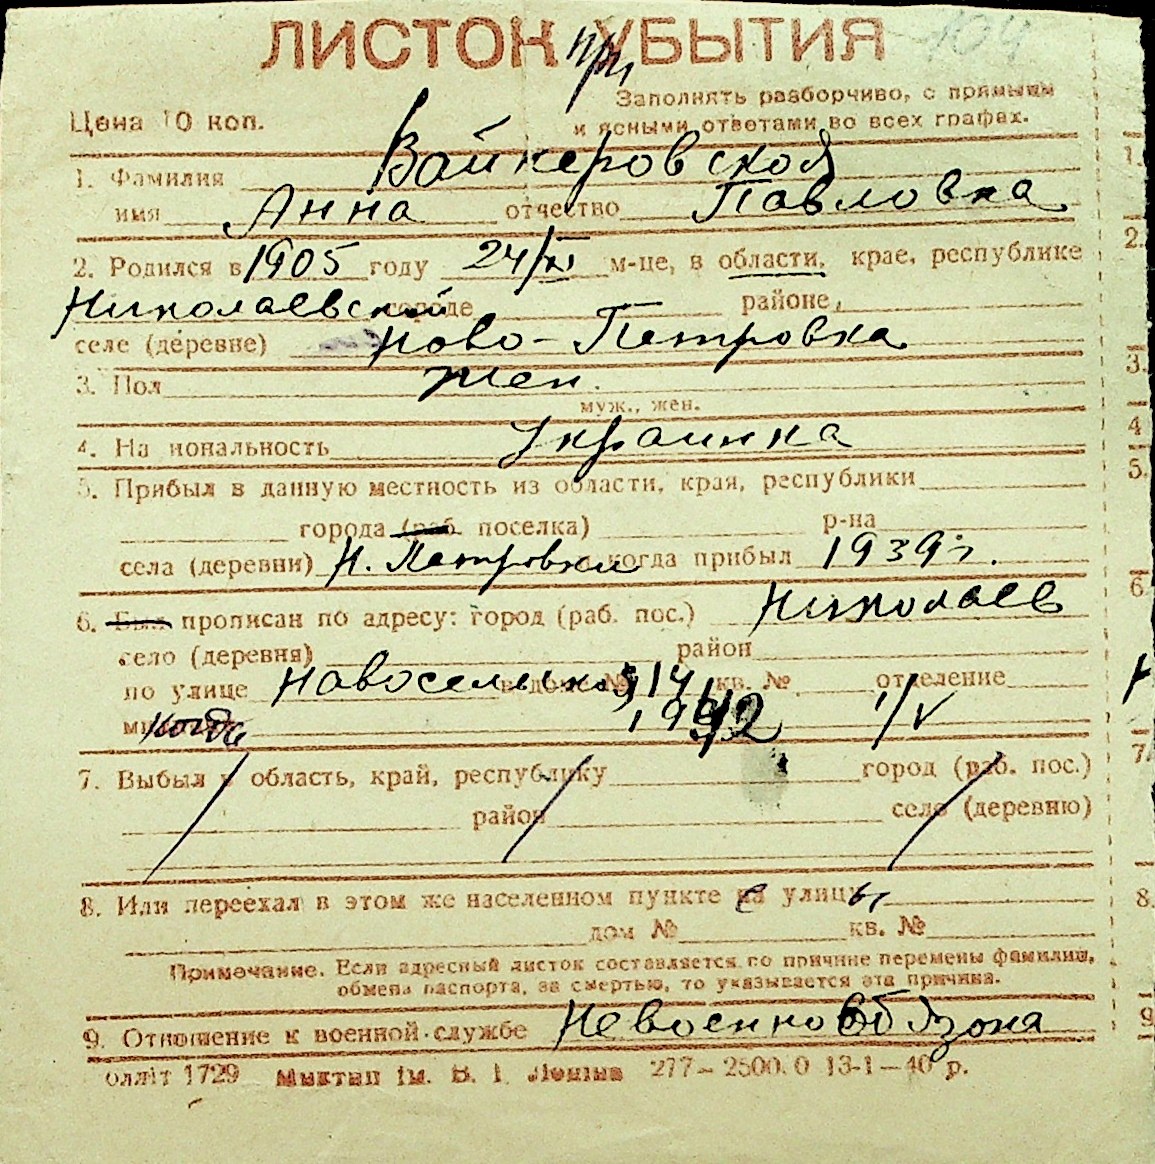 ЛИСТОК УБЫТИЯ
104
Заполнять разборчиво, с прямыми
Цена 10 коп.
и ясными ответами во всех графах.
1. Фамилия Вайнеровская
имя Анна отчество Павловна
2. Родился в 1905 году 24/XI м-це, в области, крае, республике
Николаевской городе районе,
селе (деревне) Ново-Петровка
3. Пол жен.
муж., жен.
4. На иональность Украинка
5. Прибыл в данную местность из области, края, республики
города (раб. поселка) р-на
села (деревни) Н. Петровки когда прибыл 1939 г.
6. Был прописан по адресу: город (раб. пос.) Николаев
село (деревня) район
по улице Новосельская 14 кв. № отделение
когда 1942 1/V
7. Выбыл в область, край, республику город (раб. пос.)
район село (деревню)
8. Или переехал в этом же населенном пункте с улицы
дом № кв. №
Примечание. Если адресный листок составляется по причине перемены фамилии,
обмена паспорта, за смертью, то указывается эта причина.
9. Отношение к военной службе Невоеннообязона
олліт 1729 Миктип Ім. В. І. Леніна 277–2500.0 13-1–40 р.
1.
2.
3.
4
5.
6.
7.
8.
9